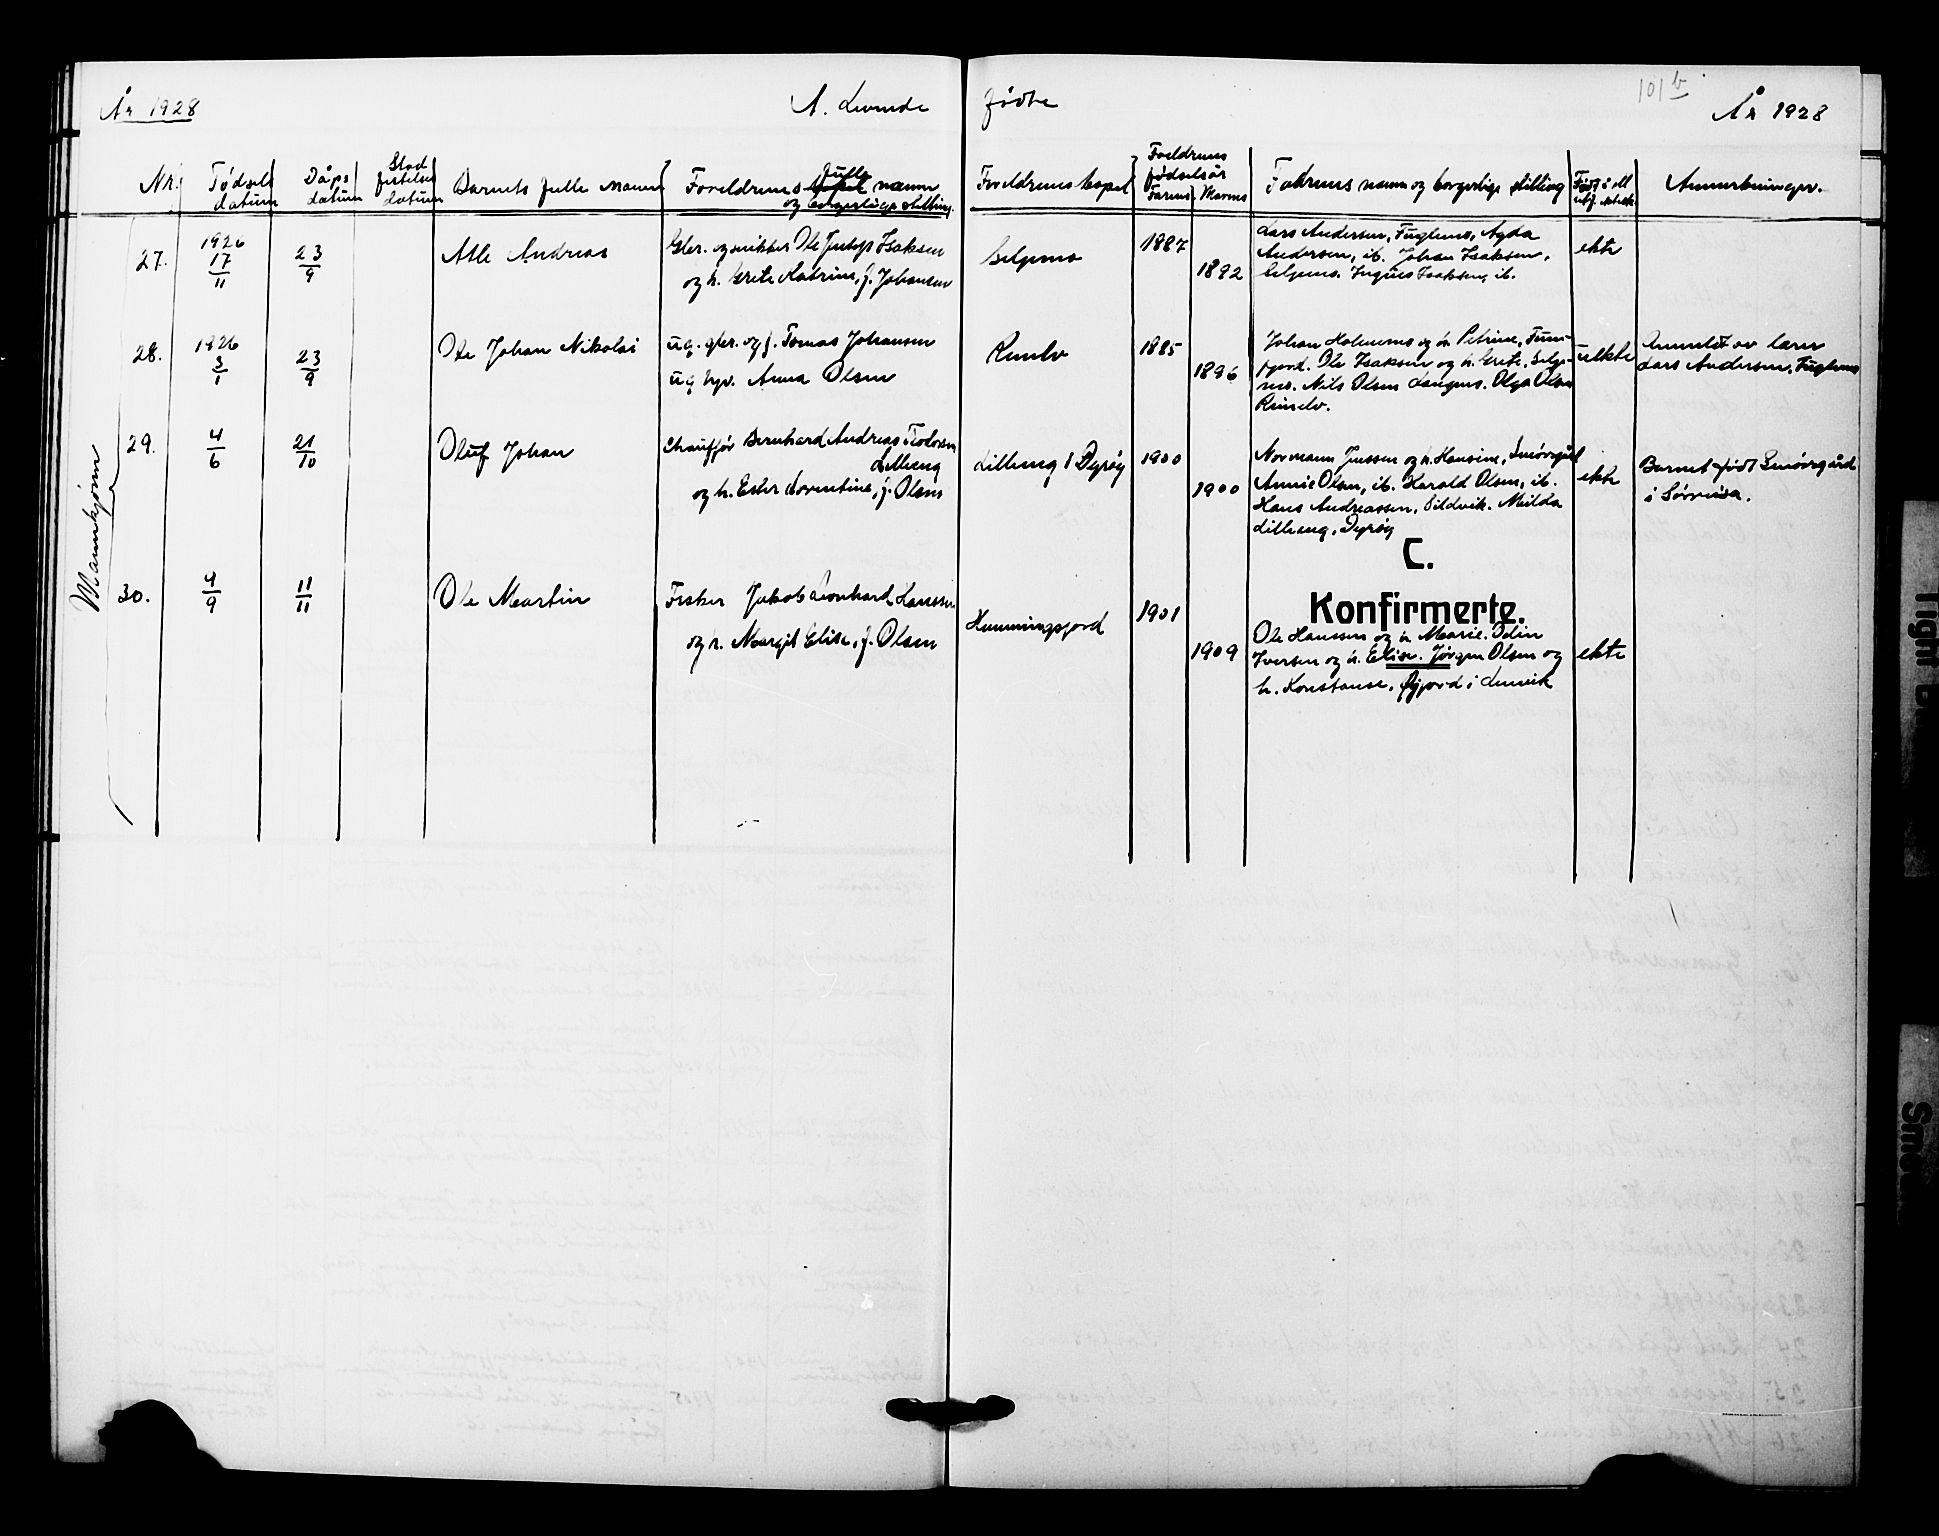 101 b
År 1928
A. Levende
fødte
År 1928
Nr.
Fødsels datum
Dåps datum
Stad festelses datum
Barnets fulle navn
Foreldrenes fulle navn
og borgerlige stilling.
Foreldrenes bopel
Foreldrenes fødselsår
Farens
Morens
Fadrenes navn og borgerlige stilling
Født i ell. utf. ektesk.
Anmerkninger.
Mannkjønn
27.
1926 17/11
23/9
Atle Andreas
Gbr. og snikker Ole Isaksen
og h. Grete Katrine, f. Johansen
Selgenes
1887
1892
Lars Andersen, Fuglenes, Agda
Andersen, ib. Johan Isaksen,
Selgenes. Isaksen, ib.
ekte
28.
1926 3/1
23/9
Ole Johan Nikolai
ug. gbr. og f. Tomas Johansen
ug. hpv. Anna Olsen
1885
1896
Johan Holmenes og h. Petrine,
fjord. Ole Isaksen og h. Grete, Selge-
nes. Nils Olsen Langnes. Olga Olsen
uekte
Anmeldt av lærer
Lars Andersen, Fuglenes
29.
4/6
21/10
Oluf Johan
Chauffør Bernhard Andreas
Lilleeng
og h. Ester Lorentine, f. Olsen
Lilleeng i Dyrøy
1900
1900
Normann Jenssen og h. Hansine,
Annie Olsen, ib. Harald Olsen, ib.
Hans Andreassen, Sildvik. Milda
Lilleeng, Dyrøy
ekte
Barnet født Smørsgård
i Sørreisa.
30.
4/9
11/11
Ole Martin
Fisker Jakob Leonhard Hanssen
og h. Margit Elise, f. Olsen
Hemmingsfjord
1901
1909
C.
Konfirmerte.
Ole Hanssen og h. Marie. Odin
Iversen og h. Elise. Jørgen Olsen og
h. Konstanse, Øyjord i Lenvik
ekte